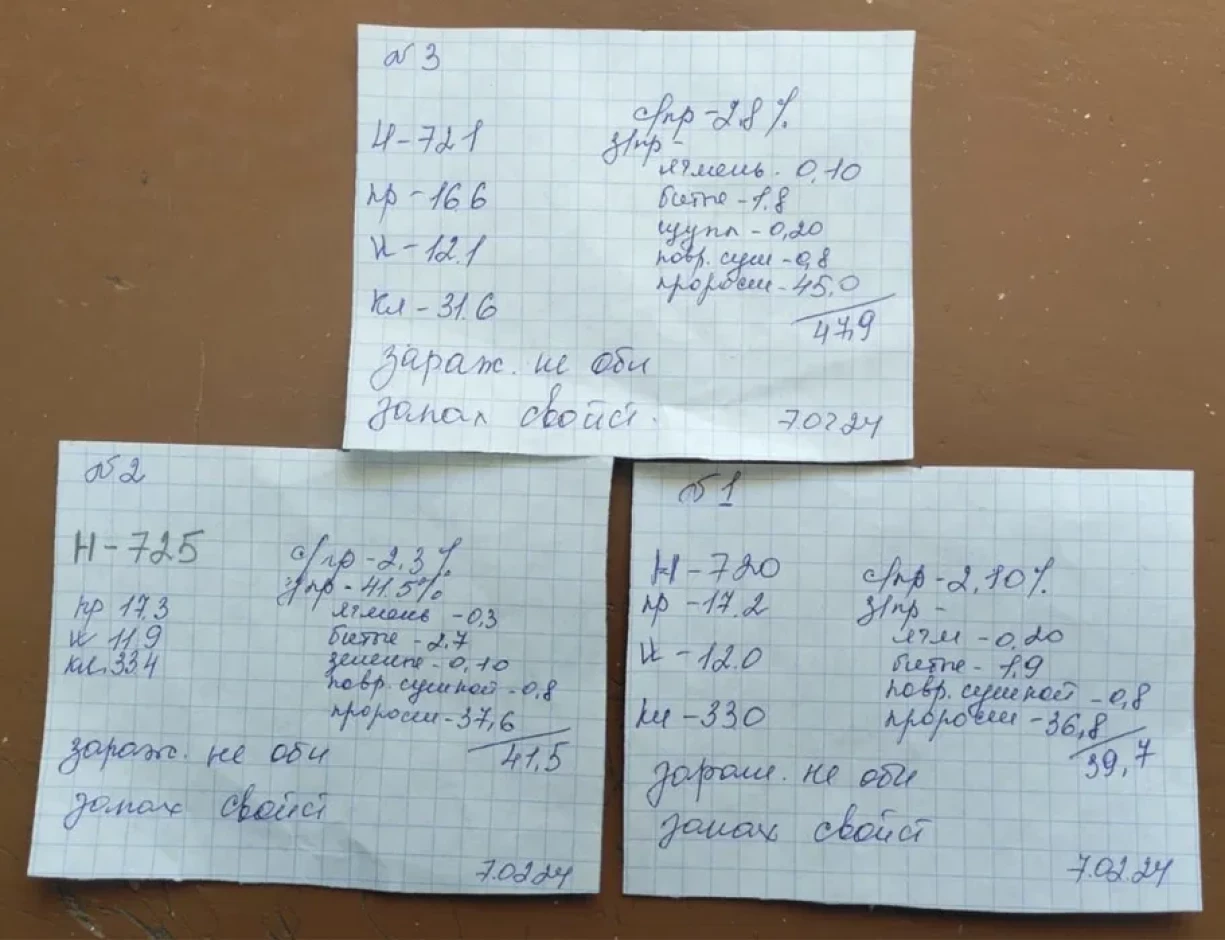 № 3
Н-721
пр-16.6
к-12.1
кл-31.6
с/пр-2.8%
з/пр-
ячмень. 0,10
битые-1,8
щупл-0,20
повр. суш-0,8
проросш-45,0
47,9
зараж. не обн
запах свойст.
7.02.24
№2
Н-725
пр 17.3
к 11.9
кл. 33.4
с/пр-2.3%
з/пр-41.5%
ячмень-0,3
битые-2,7
зелёные-0,10
повр. сушкой-0,8
проросш-37,6
41,5
зараж. не обн
запах свойст
7.02.24
№1
Н-720
пр-17.2
к-12.0
кл-33.0
с/пр-2,10%
з/пр-
ячм-0,20
битые-1,9
повр. сушкой-0,8
проросш-36,8
39,7
зараж. не обн
запах свойст
7.02.24